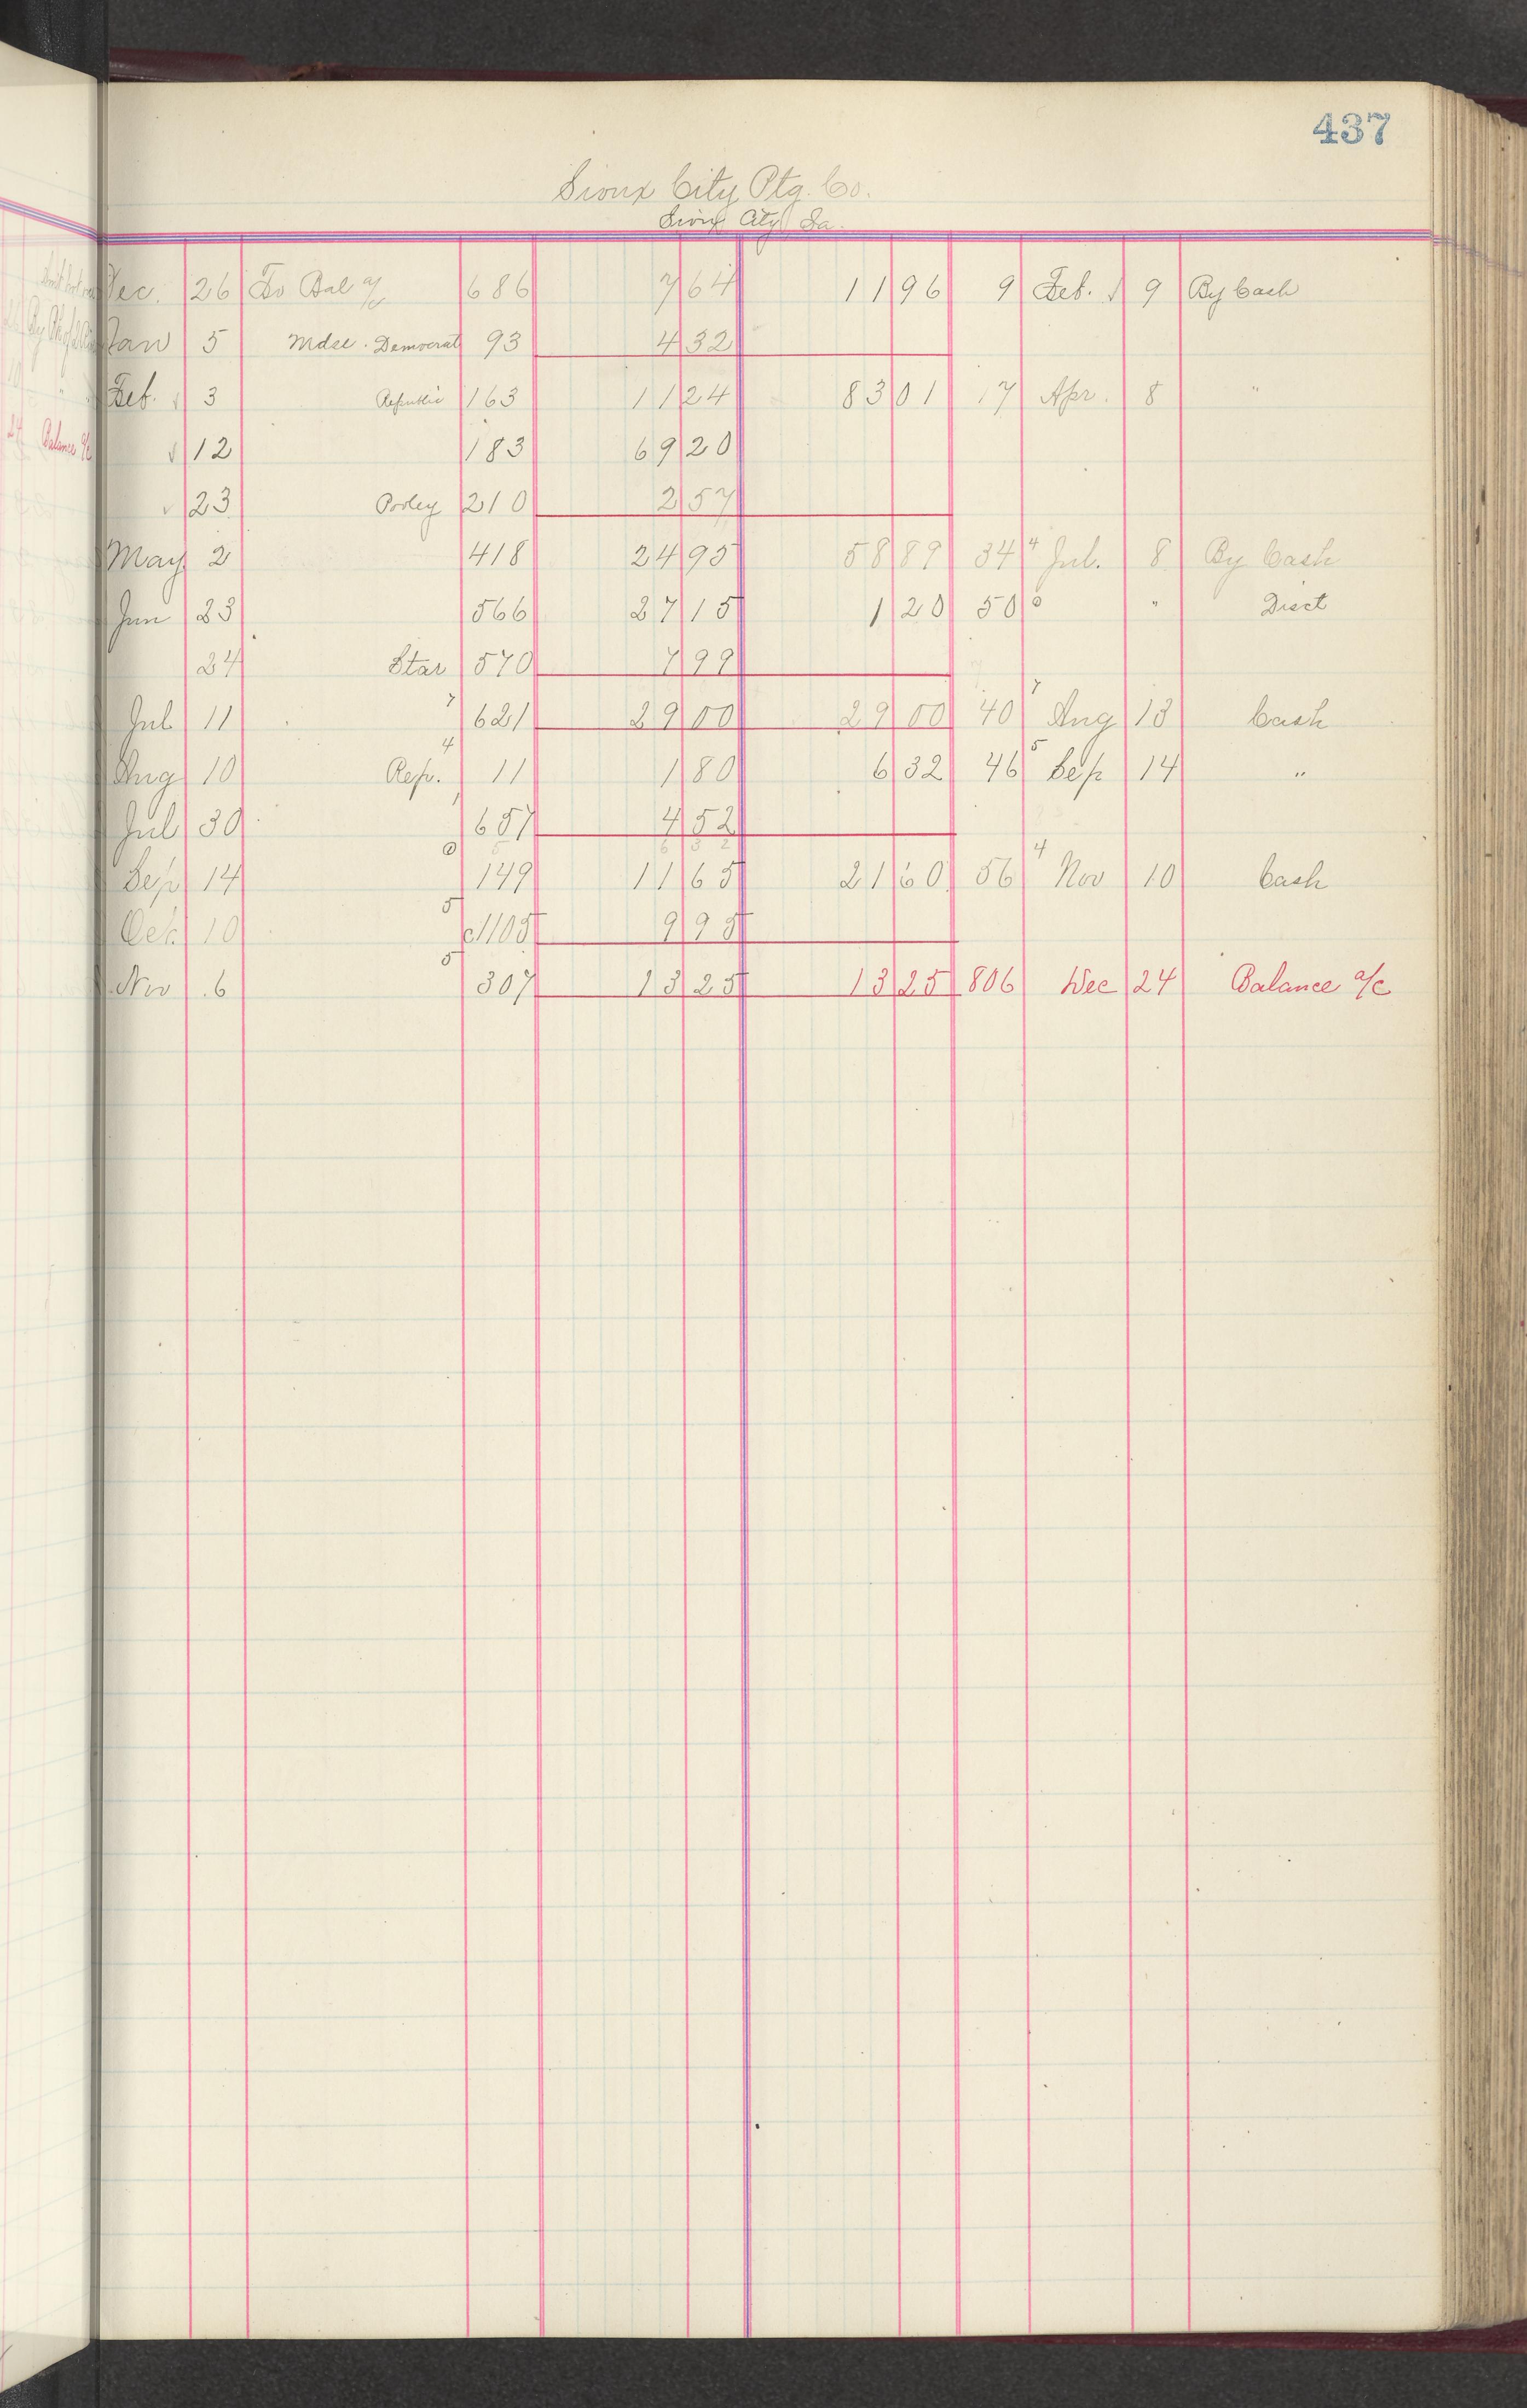 437
Sioux City Ptg. Co.
Sioux City Ia.
Dec. 26 To Bal a/c 686 7 64 11 96 9 Feb. √ 9 By Cash
Jan 5 Mdse. Democrat 93 4 32
Feb. √ 3 Republic 163 11 24 83 01 17 Apr. 8 "
√ 12 183 69 20
√ 23 210 2 57
May 2 418 24 95 58 89 34 4 Jul. 8 By Cash
Jun 23 566 27 15 1 20 50 0 " Disct
24 Star 570 7 99
Jul 11 7 621 29 00 29 00 40 7 Aug 13 Cash
Aug 10 Rep. 4 11 1 80 6 32 46 5 Sep 14 "
Jul 30 1 657 4 52
6 3 2
Sep 14 0 149 11 65 21 60 56 4 Nov 10 Cash
Oct. 10 5 c1105 9 95
Nov. 6 5 307 13 25 13 25 806 Dec 24 Balance a/c
24 Balance a/c